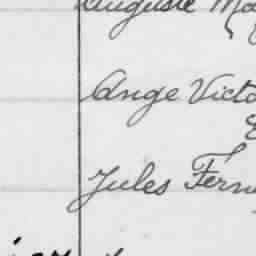 Auguste Ma
Ange Victo
Jules Fern